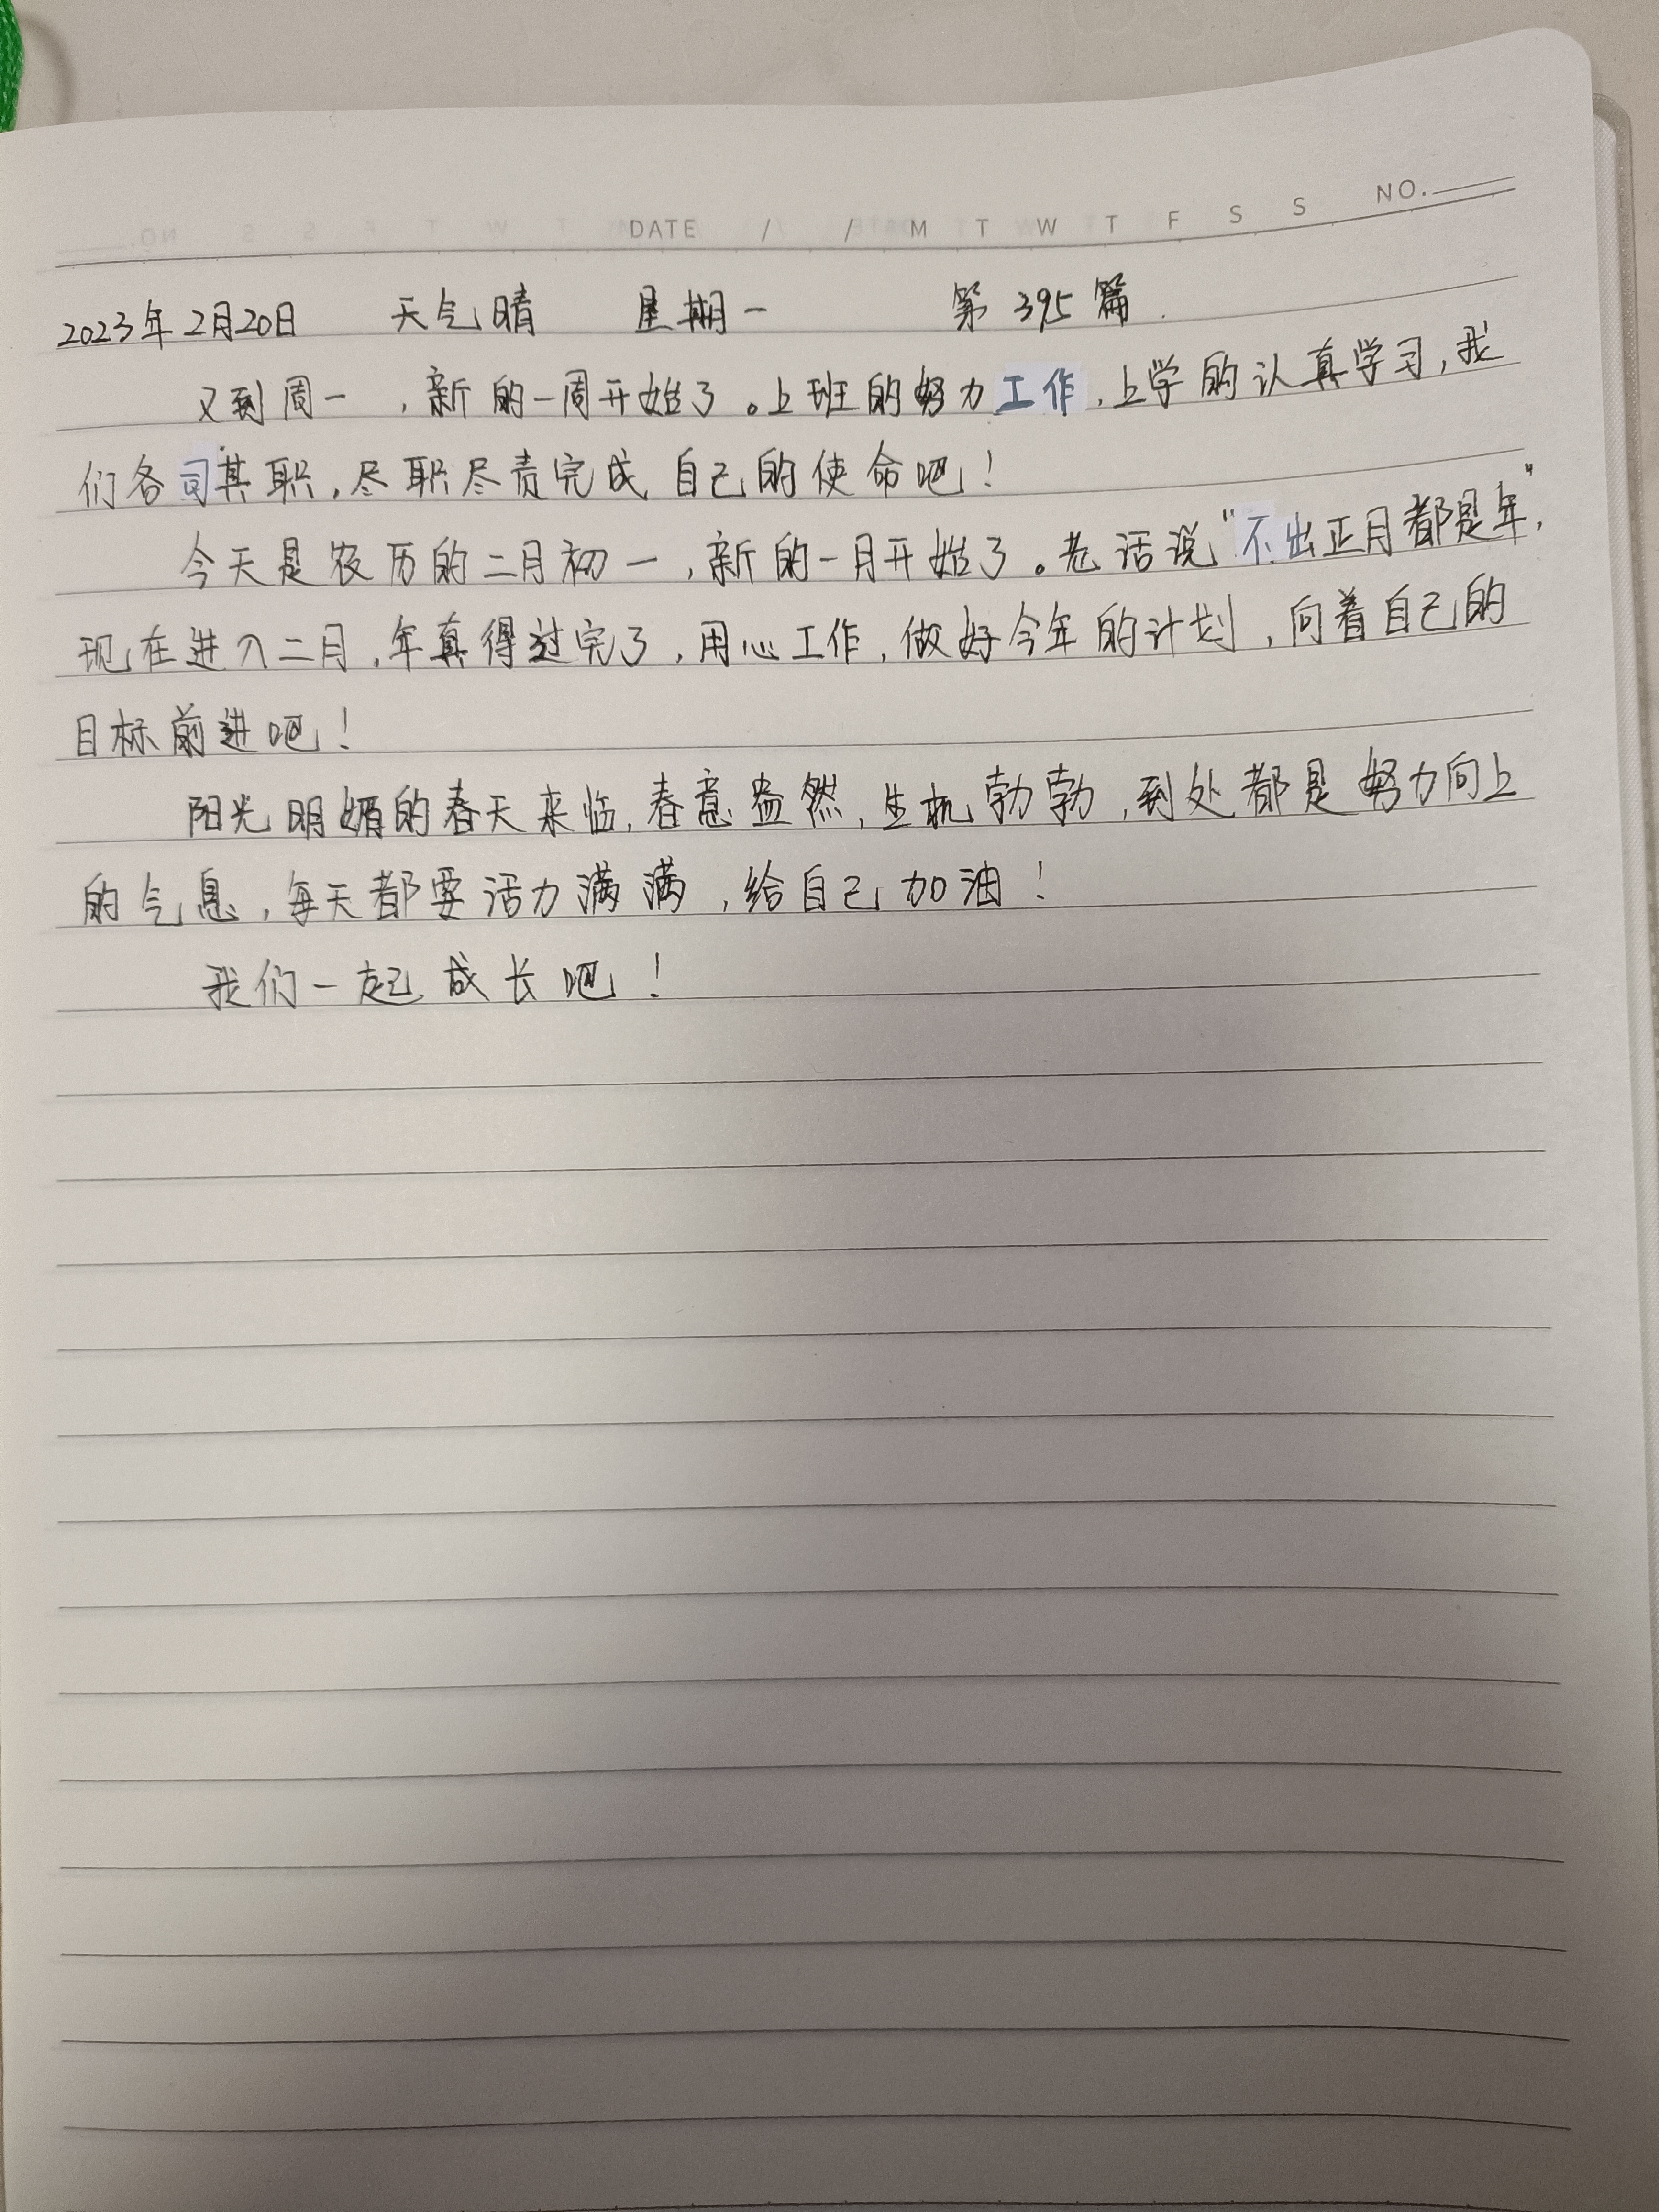 DATE / / M T W T F S S NO.
2023年2月20日 天气晴 星期一 第395篇
又到周一，新的一周开始了。上班的努力工作，上学的认真学习，我
们各司其职，尽职尽责完成自己的使命吧！
今天是农历的二月初一，新的一月开始了。老话说“不出正月都是年”，
现在进入二月，年真得过完了，用心工作，做好今年的计划，向着自己的
目标前进吧！
阳光明媚的春天来临，春意盎然，生机勃勃，到处都是努力向上
的气息，每天都要活力满满，给自己加油！
我们一起成长吧！